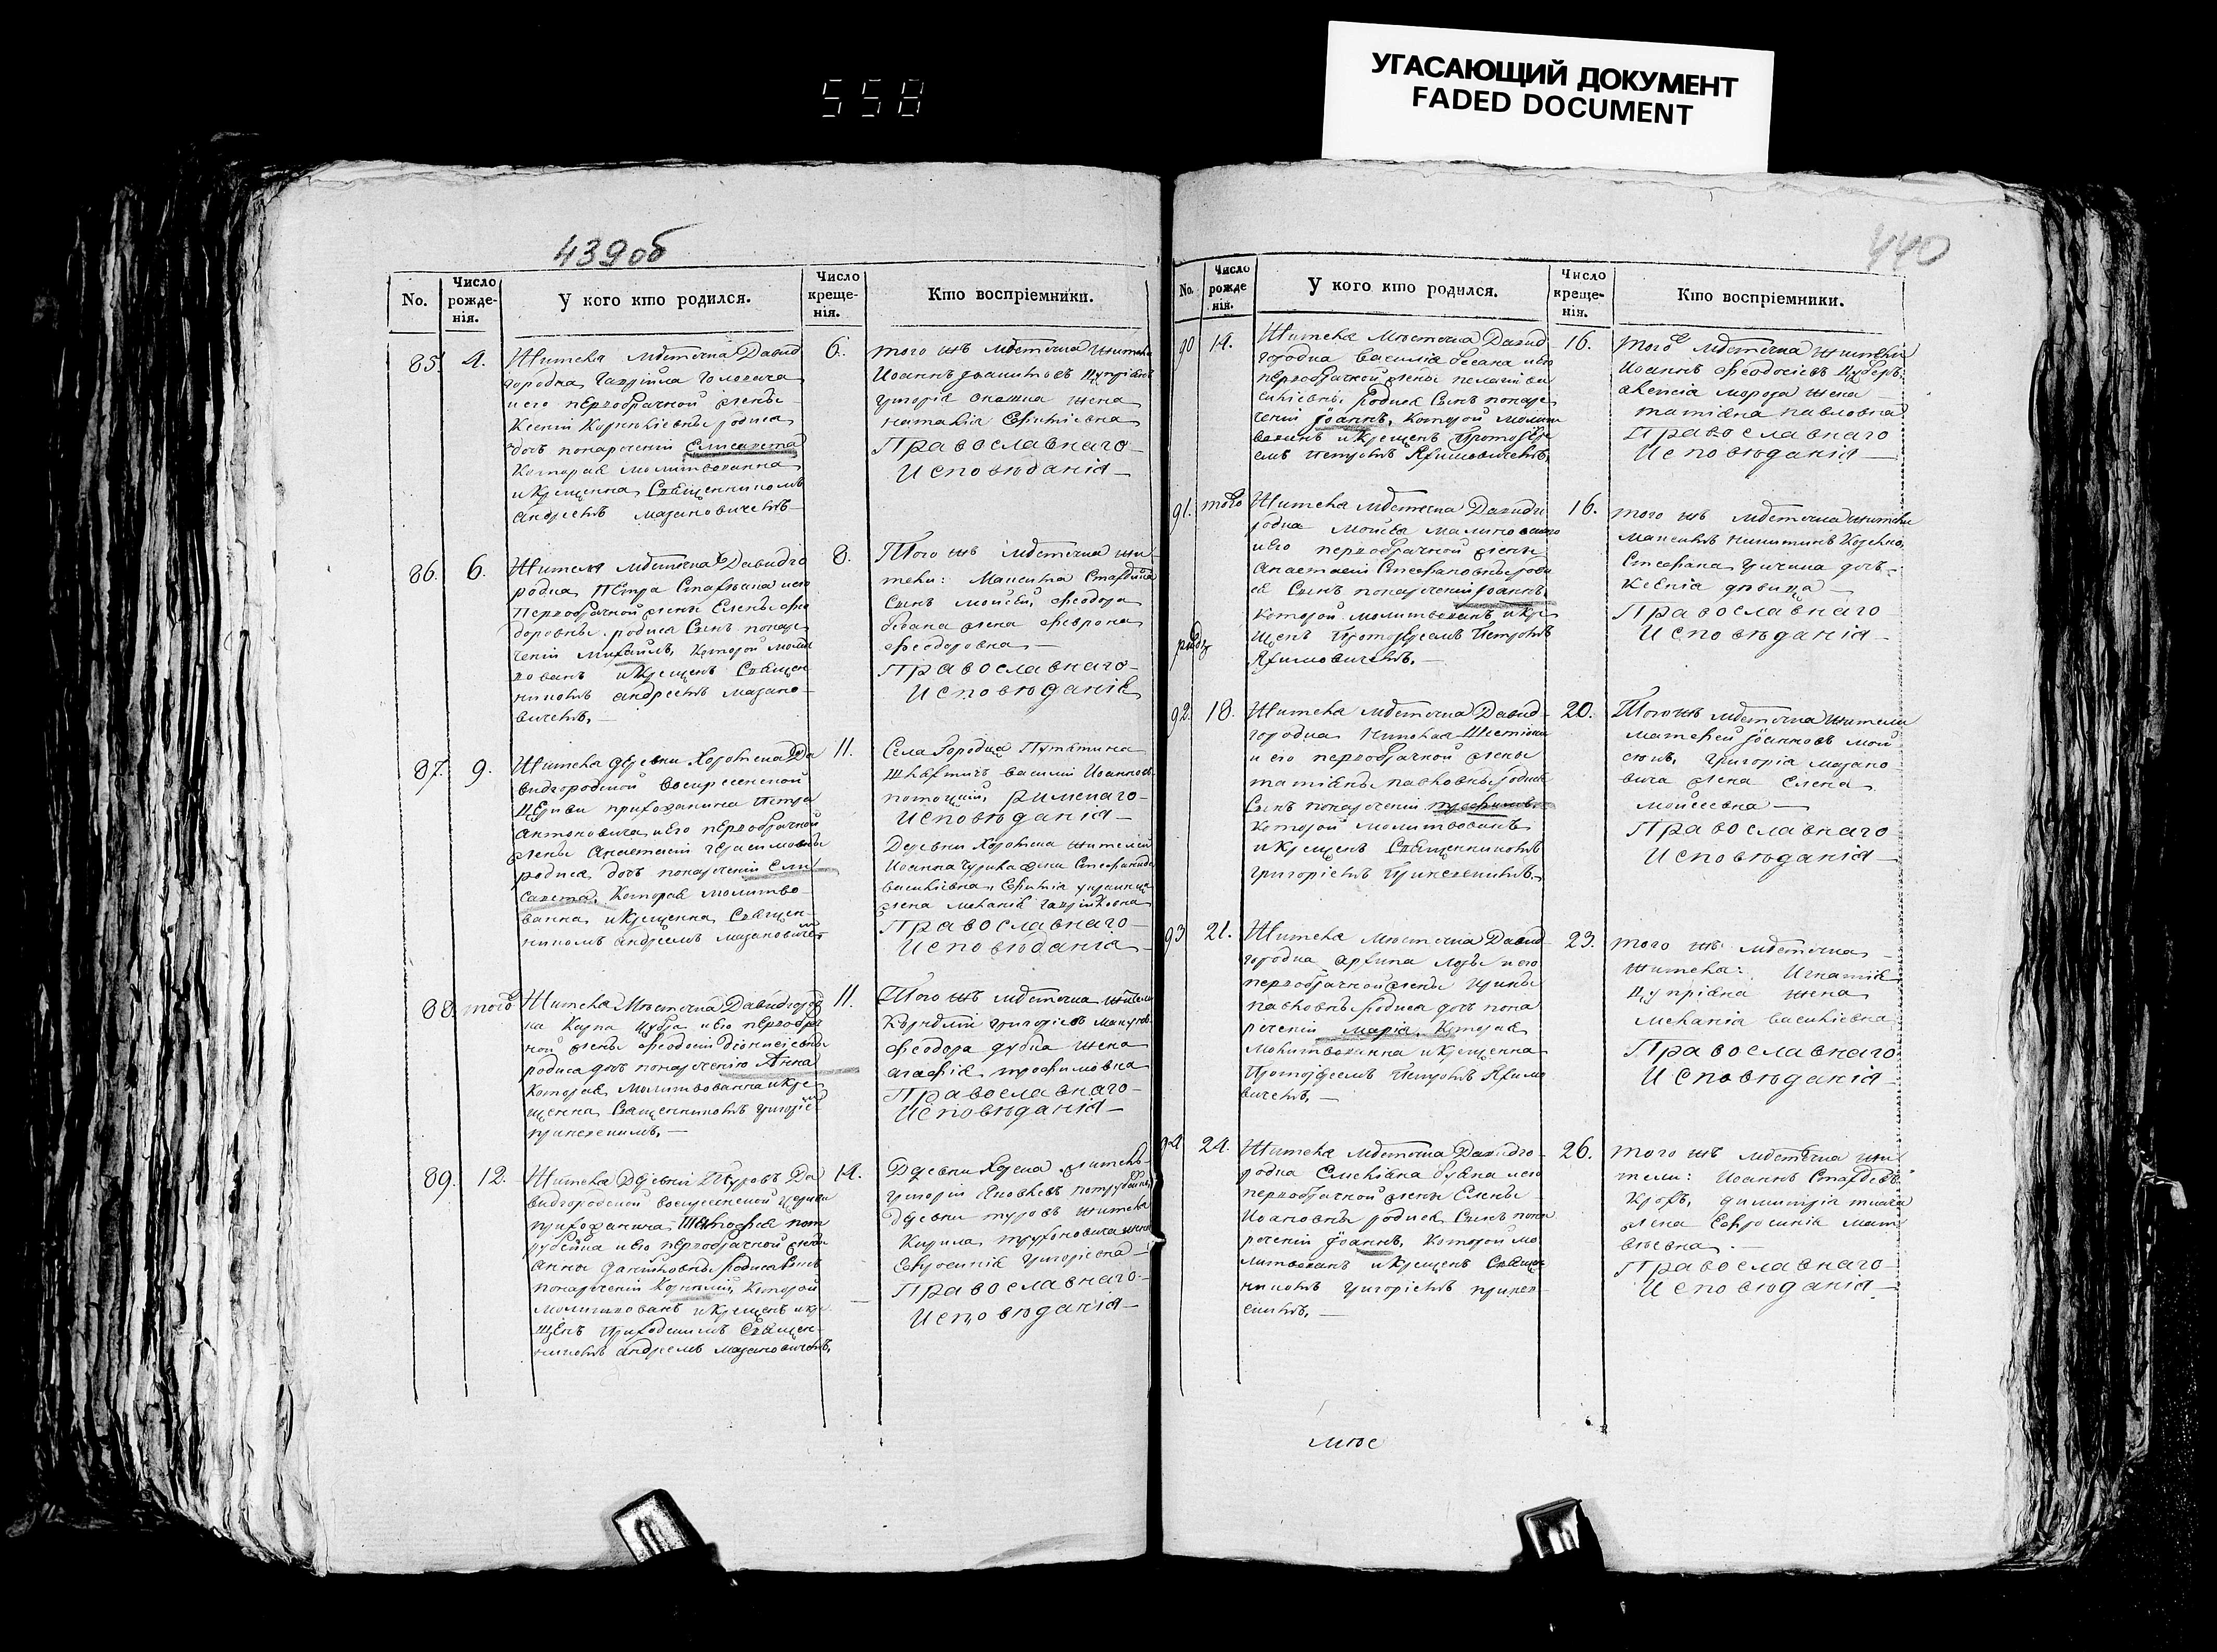 УГАСАЮЩИЙ ДОКУМЕНТ
FADED DOCUMENT
558
439об
No.
Число рожде-нія.
У кого кто родился.
Число креще-нія.
Кто воспріемники.
85.
4.
Жителя мѣстечка Давид
городка Гавріила Головача
и его первобрачной жены
Ксеніи Корниліевны родися
дочь понареченіи Елисавета
Которая молитвованна
и Крещенна Священникомъ
Андреемъ Мазановичемъ
6.
того жъ мѣстечка жители
Григорія жена
Наталія
Православнаго
Исповѣданія
86.
6.
Жителя мѣстечка Давидго
родка Петра и его
Первобрачной жены Елены Фео
доровны родися Сынъ понаре
ченіи Михаилъ, Которой молит
вованъ и Крещенъ Священ
никомъ Андреемъ Мазано
вичемъ,
8.
Того жъ мѣстечка жи
тели:
Сынъ Моисей, Феодора
жена Феврона
Феодоровна
Православнаго
Исповѣданія
87.
9.
Жителя деревни Хоромска Да
видгородской Воскресенской
Церкви прихожанина Петра
Антоновича и его первобрачной
жены Анастасіи Герасимовны
родися дочь понареченіи Ели
савета, Которая молитво
ванна и Крещенна Священ
никомъ Андреемъ Мазановичемъ
11.
Села Городца
Василій
римскаго
Исповѣданія
Деревни Хоромска жителей
Іоанна жена Стефанида
Василіевна,
жена Меланія Гавріиловна
Православнаго
Исповѣданія
88.
того
Жителя Мѣстечка Давидгород
ка Карпа и его первобрач
ной жены Феодосіи Діонисіевны
родися дочь понареченію Анна
Которая Молитвованна и Кре
щенна Священникомъ Григоріе
11.
Того жъ мѣстечка жители
Корнилій Григоріевъ
Феодора дубка жена
Агафія Трофимовна
Православнаго
Исповѣданія
89.
12.
Жителя Деревни Туровъ Да
видгородской Воскресенской церкви
прихожанина
и его первобрачной жены
Анны Даниловны родися Сынъ
понареченіи Корнилій, Которой
Молитвованъ и Крещенъ и кре
щенъ Приходскимъ Священ
никомъ Андреемъ Мазановичемъ,
14.
Деревни житель
Григорій Яковлевъ
деревни Туровъ жителя
Кирила Трухоновича жена
Евфросинія Григоріевна
Православнаго
Исповѣданія
440
No.
Число рожде нія.
У кого кто родился.
Число креще-нія.
Кто воспріемники.
90
14.
Жителя Мѣстечка Давид
городка Василія и его
первобрачной жены Пелагіи Ва
силіевны родися Сынъ понаре
ченіи Іоаннъ, Которой молит
вованъ и Крещенъ Протоіере
емъ Петромъ Якимовичемъ
16.
Того мѣстечка жители
Іоаннъ Феодосіевъ
Алексія Мороза жена
Татіана Павловна
Православнаго
Исповѣданія
91.
того
Жителя мѣстечка Давидго
родка Моисея Малиновского
и его первобрачной жены
Анастасіи Стефановны роди
ся Сынъ понареченіи Іоаннъ,
Которой молитвованъ и Кре
щенъ Протоіереемъ Петромъ
Якимовичемъ,
16.
того жъ мѣстечка жители
Максимъ Никитинъ
Стефана дочь
Ксенія дѣвица
Православнаго
Исповѣданія
92.
18.
Жителя мѣстечка Давид
городка Николая
и его первобрачной жены
Татіаны Павловны родися
Сынъ понареченіи Трофимъ
Которой молитвованъ
и Крещенъ Священникомъ
Григоріемъ
20.
Того жъ мѣстечка жители
Матфей Іоанновъ Мои
сюкъ, Григорія Мазано
вича жена Елена
Моисеевна
Православнаго
Исповѣданія
93
21.
Жителя Мѣстечка Давид
городка Архипа Лозы и его
первобрачной жены Ирины
Павловны родися дочь пона
реченіи Марія, Которая
Молитвованна и Крещенна
Протоіереемъ Петромъ Якимо
вичемъ,
23.
того жъ мѣстечка
жителя: Игнатія
Купріяна жена
Меланія Василіевна
Православнаго
Исповѣданія
94
24.
Жителя мѣстечка Давидго
родка и его
первобрачной жены Елены
Іоановны родися Сынъ пона
реченіи Іоаннъ, Которой мо
литвованъ и Крещенъ Священ
никомъ Григоріемъ
26.
того жъ мѣстечка жи
тели: Іоаннъ
Димитрія ткача
жена Евфросинія Мат
вѣевна
Православнаго
Исповѣданія
мѣс